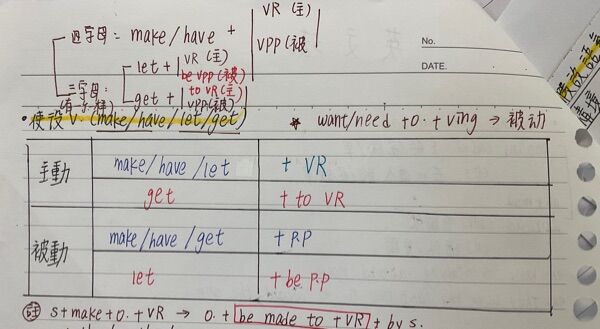 四字母: make/have + VR (主)
VPP (被
let + VR (主)
be VPP (被)
三字母:
get + to VR (主)
VPP (被)
No.
DATE.
• 使役 V. (make/have/let/get)
* want/need +O. + Ving → 被动
主動 make/have/let + VR
get + to VR
被動 make/have/get + P.P
let + be P.P
S+make+O.+VR → O.+ be made to +VR + by S.